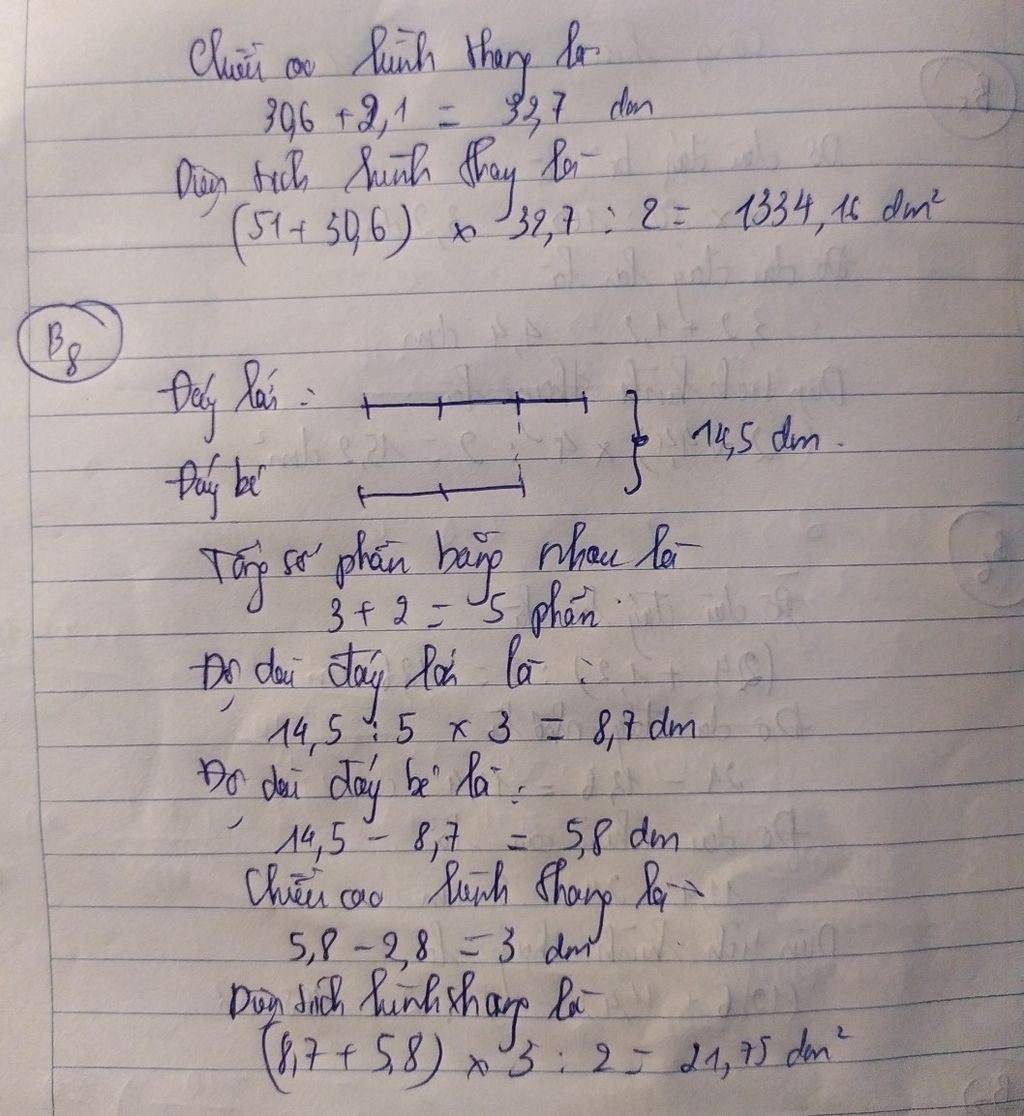 Chiều cao hình thang là
30,6 + 2,1 = 32,7 dm
Diện tích hình thang là
(51 + 30,6) x 32,7 : 2 = 1334,16 dm²
B8
Đáy lớn :
14,5 dm.
Đáy bé
Tổng số phần bằng nhau là
3 + 2 = 5 phần
Độ dài đáy lớn là :
14,5 : 5 x 3 = 8,7 dm
Độ dài đáy bé là :
14,5 - 8,7 = 5,8 dm
Chiều cao hình thang là
5,8 - 2,8 = 3 dm
Diện tích hình thang là
(8,7 + 5,8) x 3 : 2 = 21,75 dm²